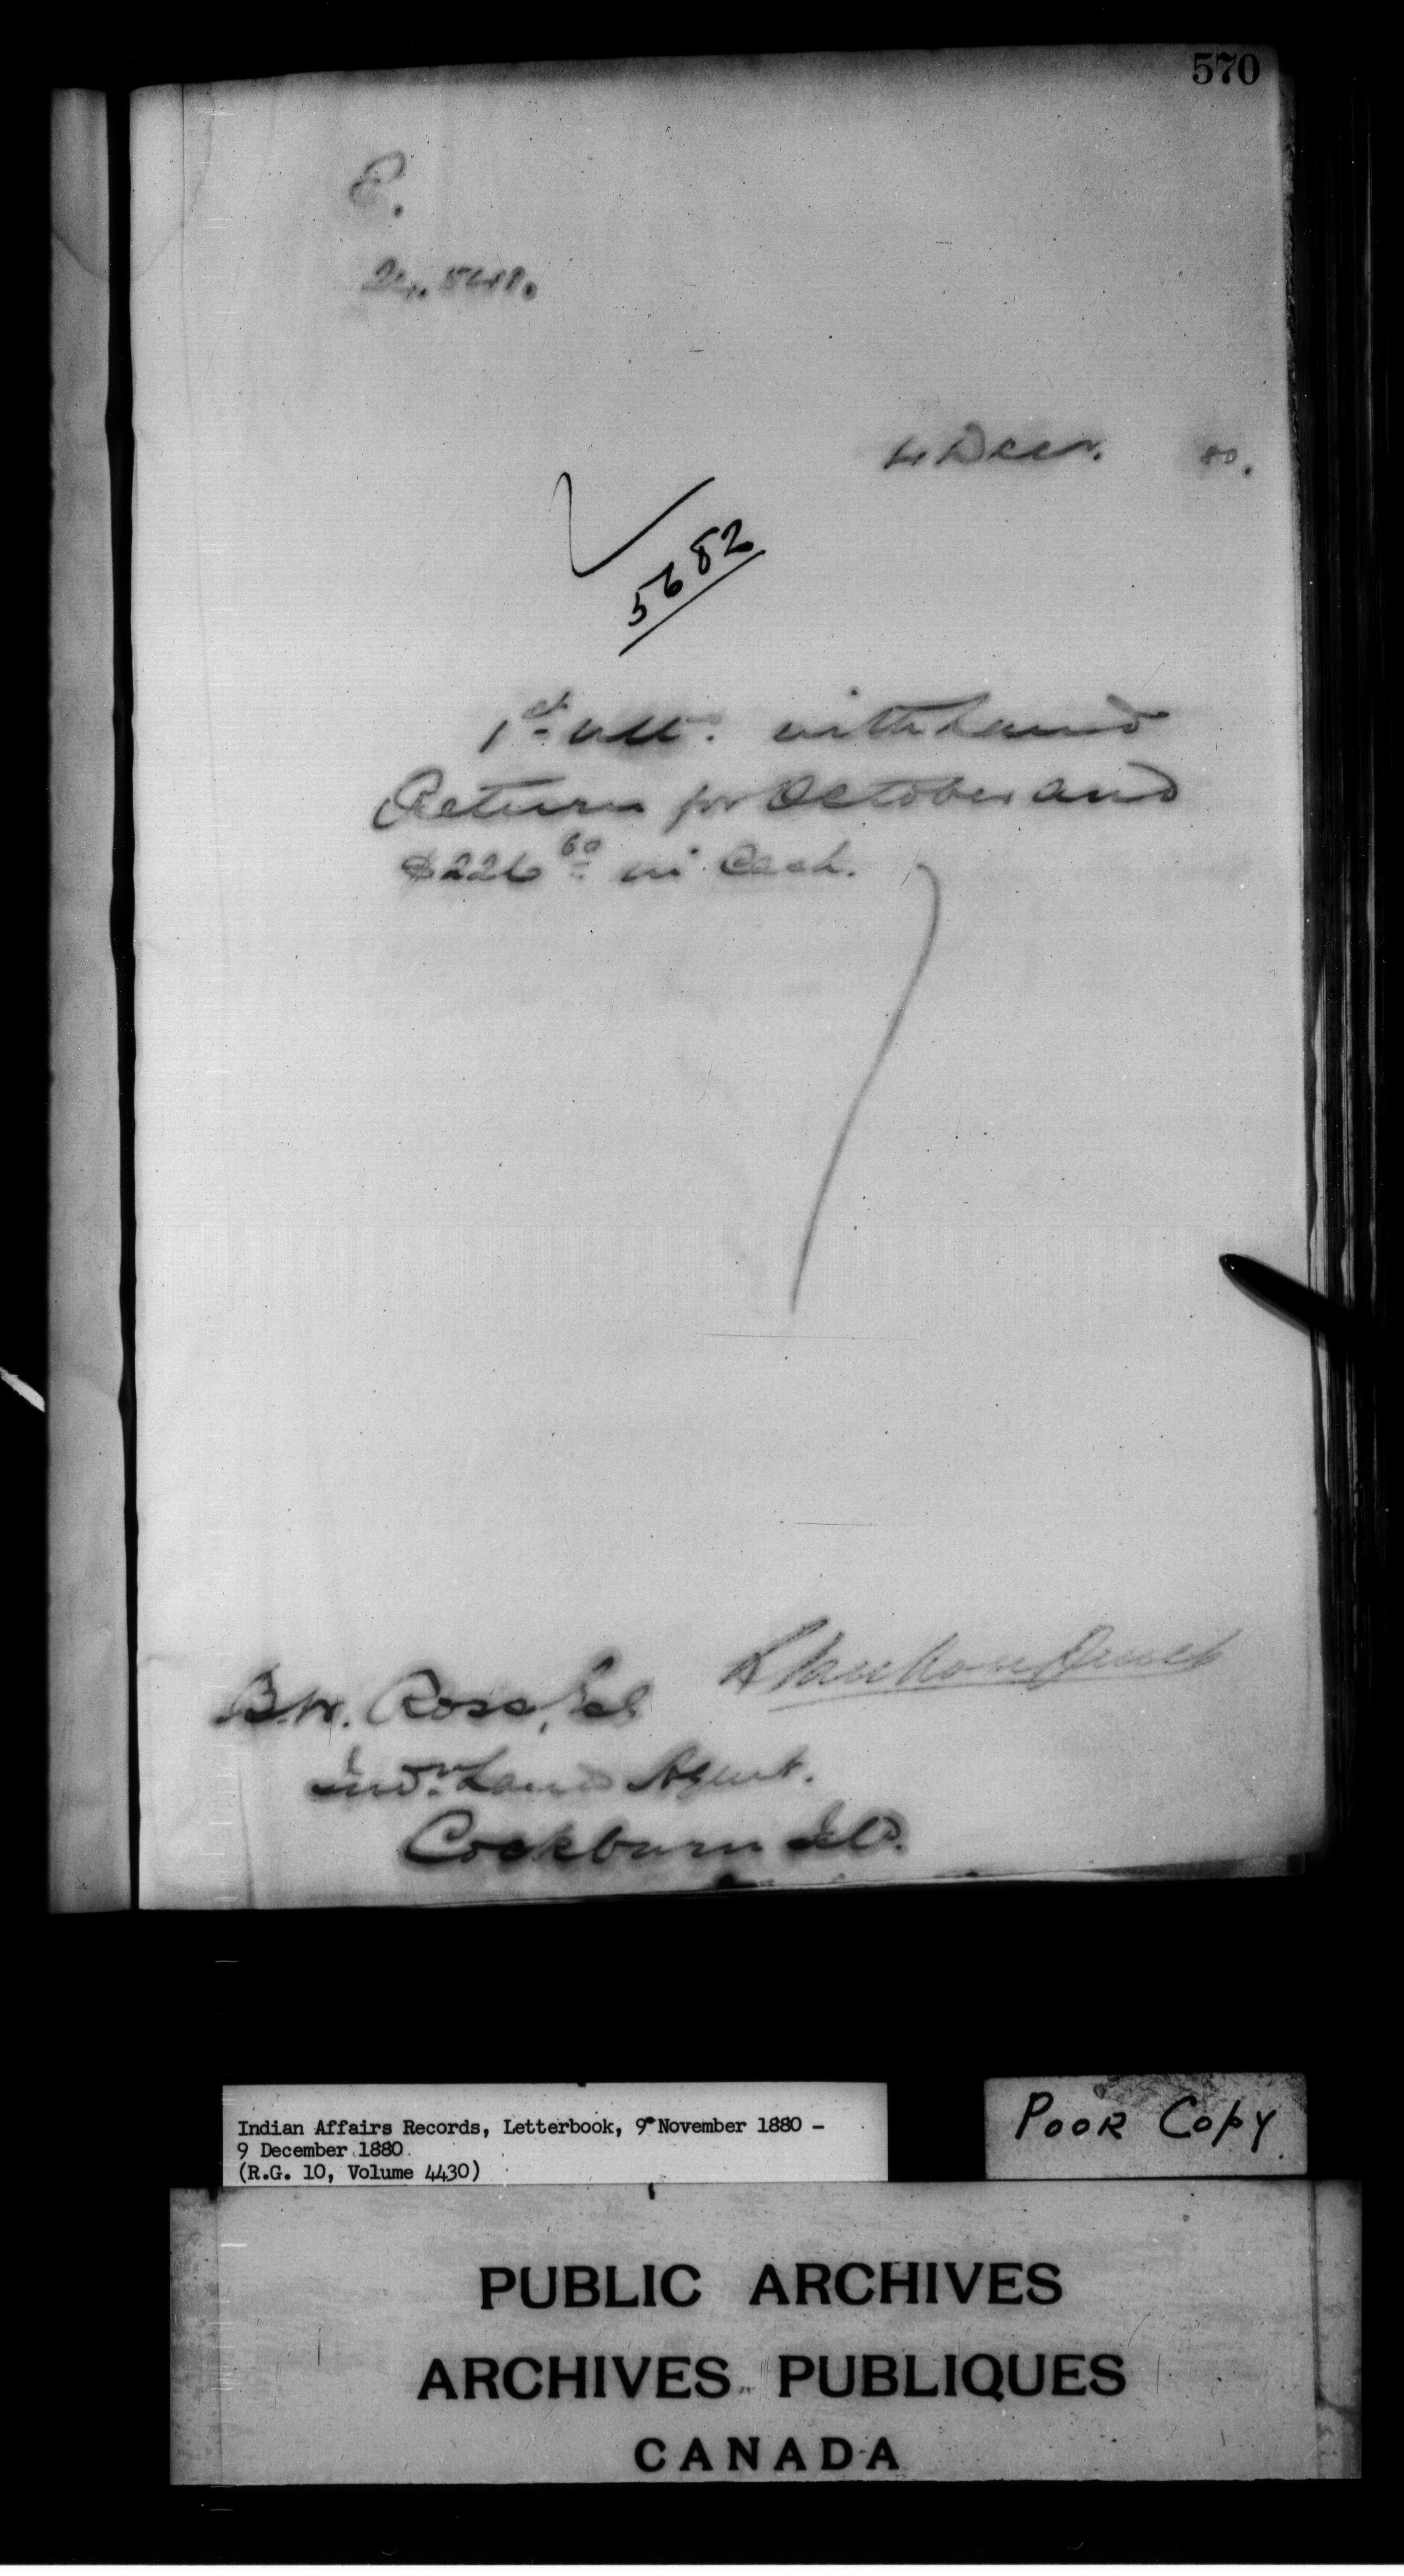 570
E.
4 Decr. 80.
5682
1st ult. with Land
Return for October and
$226 60 in Cash.
B.W. Ross, Esq
Indn. Land Agent.
Cockburn Isld.
Indian Affairs Records, Letterbook, 9 November 1880 -
9 December 1880.
(R.G. 10, Volume 4430)
POOR COPY
PUBLIC ARCHIVES
ARCHIVES PUBLIQUES
CANADA